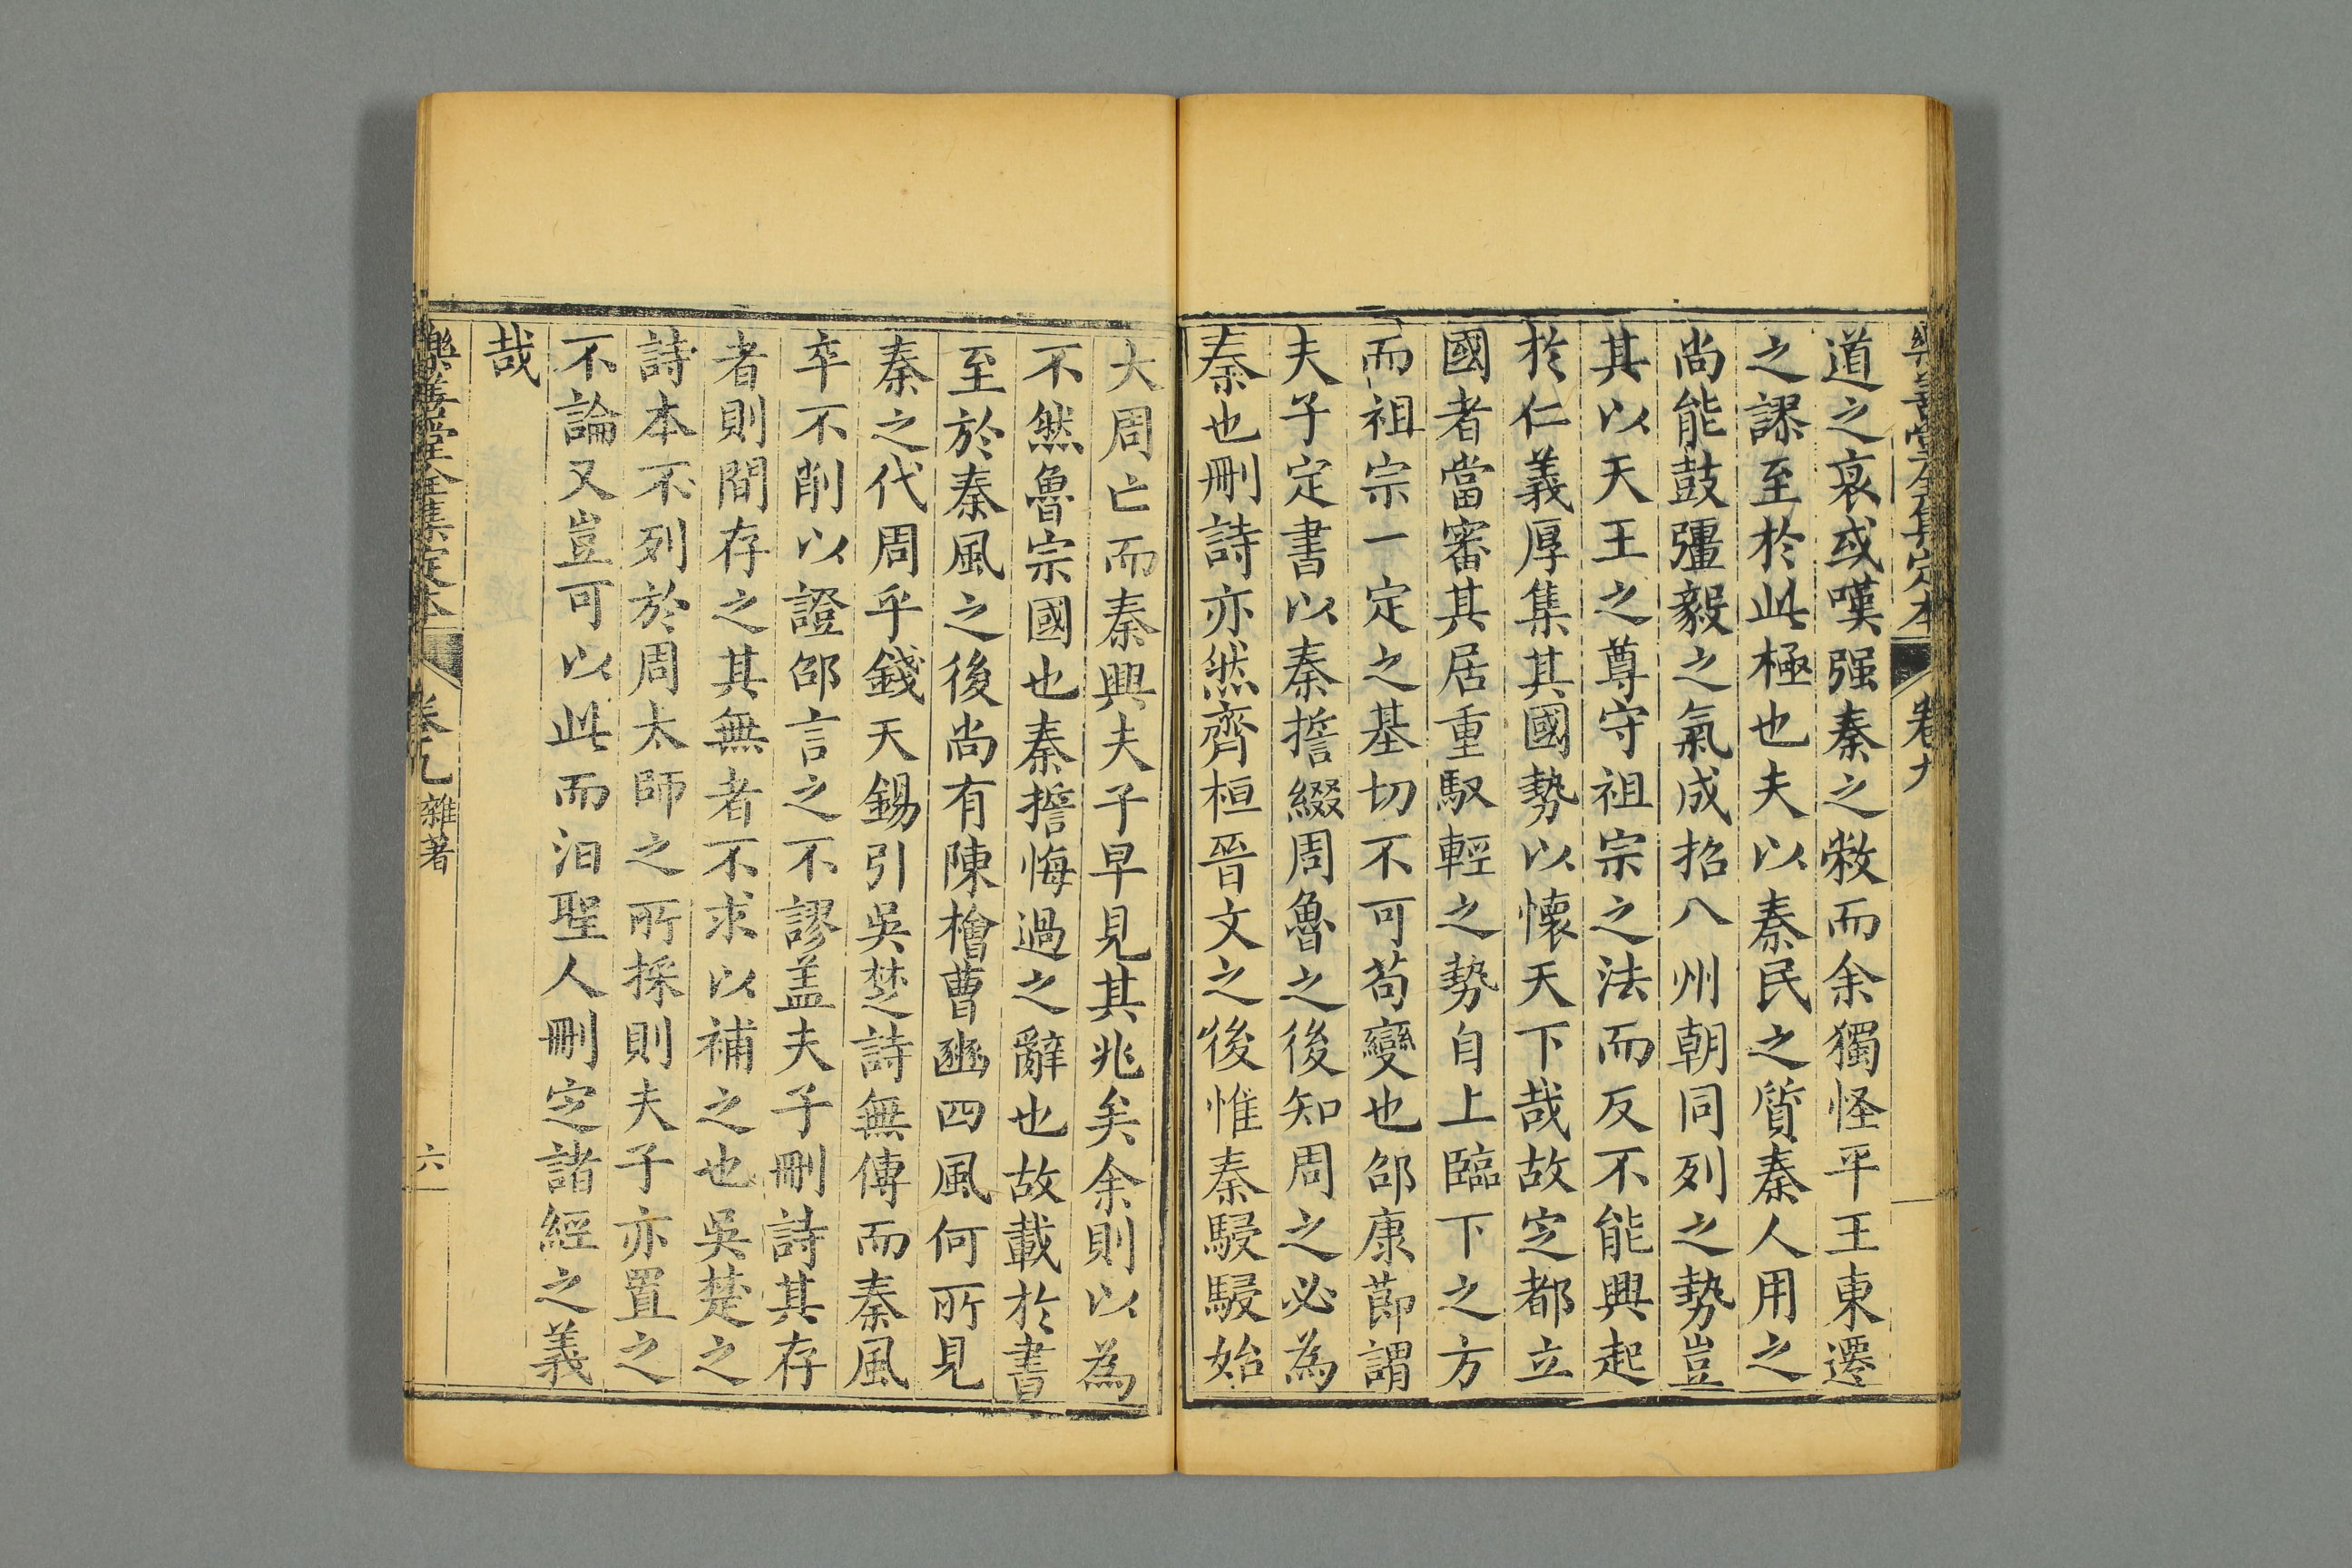 樂善堂全集定本 卷九
道之衰或嘆强秦之敝而余獨怪平王東遷
之謬至於此極也夫以秦民之質秦人用之
尚能鼓彊毅之氣成招八州朝同列之勢豈
其以天王之尊守祖宗之法而反不能興起
於仁義厚集其國勢以懷天下哉故定都立
國者當審其居重馭輕之勢自上臨下之方
而祖宗一定之基切不可苟變也邵康莭謂
夫子定書以秦誓綴周魯之後知周之必為
秦也刪詩亦然齊桓晉文之後惟秦駸駸始
大周亡而秦興夫子早見其兆矣余則以為
不然魯宗國也秦誓悔過之辭也故載於書
至於秦風之後尚有陳檜曹豳四風何所見
秦之代周乎錢天錫引吳楚詩無傳而秦風
卒不削以證邵言之不謬盖夫子刪詩其存
者則間存之其無者不求以補之也吳楚之
詩本不列於周太師之所採則夫子亦置之
不論又豈可以此而汩聖人刪定諸經之義
哉
樂善堂全集定本 卷九 雜著 六